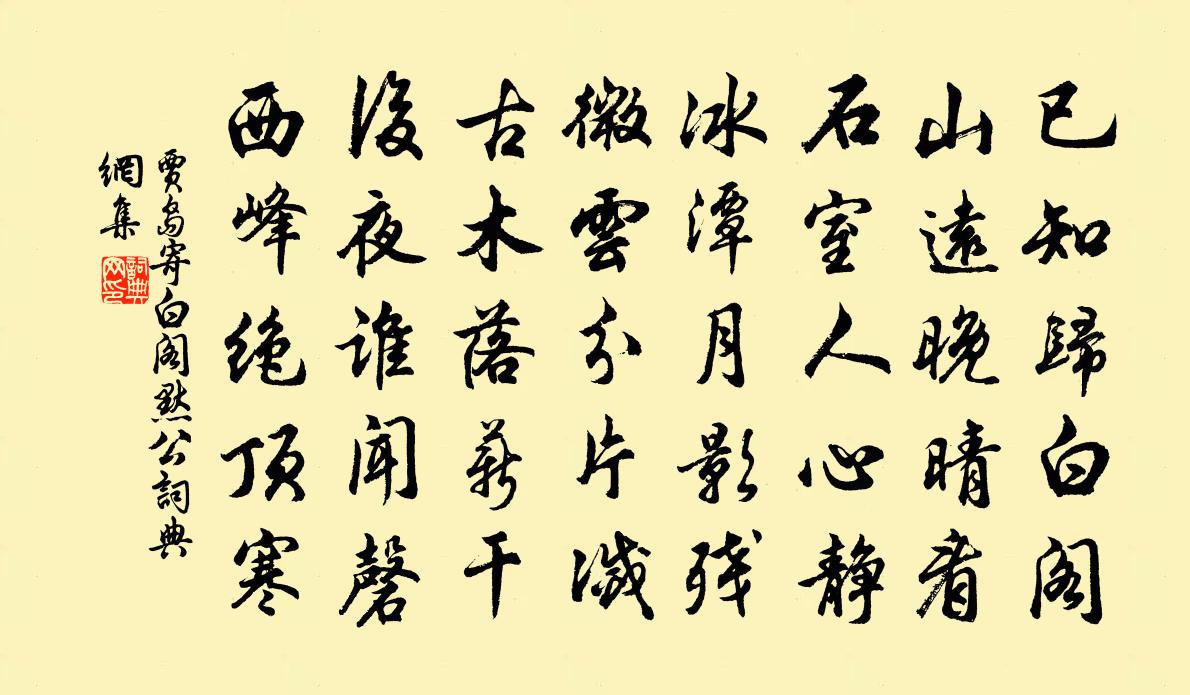 已知歸白阁
山遠晚晴看
石室人心静
冰潭月影残
微雲分片滅
古木落薪干
後夜谁闻磬
西峰绝顶寒
賈島寄白阁默公詞典
網集
詞典
网印